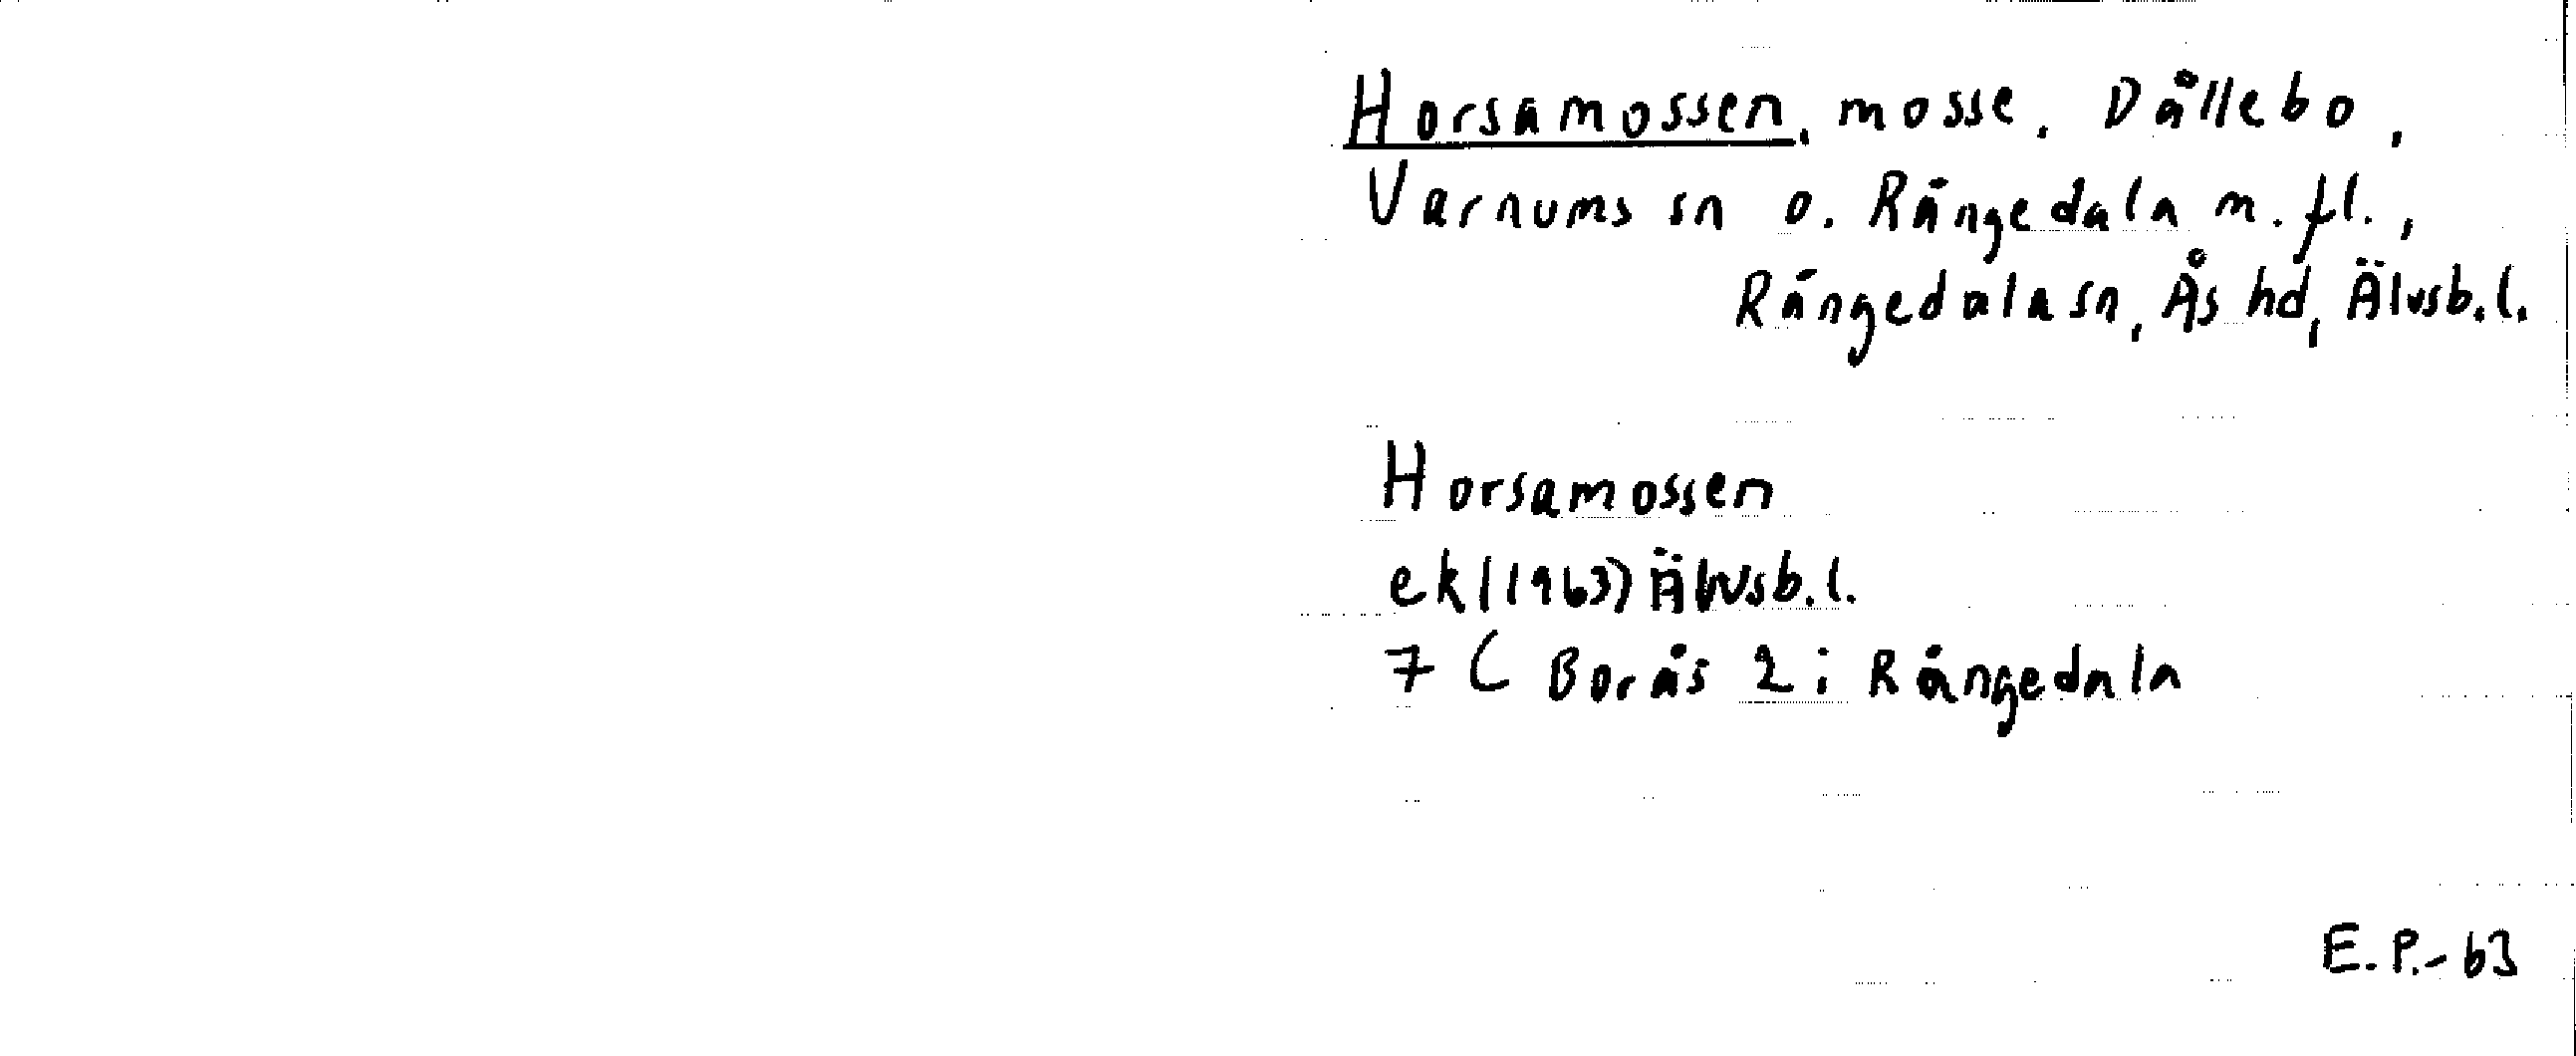 Horsamossen, mosse. Dållebo,
Varnums sn o. Rångedala m. fl.,
Rångedala sn, Ås hd, Älvsb.l.
Horsamossen
ek (1963) Älvsb.l.
7 C Borås 2 i Rångedala
E.P.-63